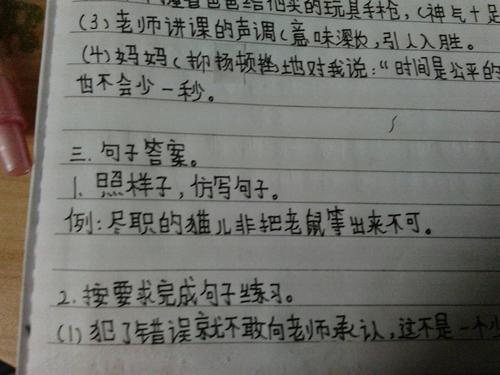 着爸爸给他买的玩具手枪,(神气十足
(3)老师讲课的声调(意味深长,引人入胜。
(4)妈妈(抑扬顿挫地对我说:“时间是公平的
也不会少一秒。
三.句子答案。
1.照样子,仿写句子。
例:尽职的猫儿非把老鼠等出来不可。
2.按要求完成句子练习。
(1)犯了错误就不敢向老师承认,这不是一个